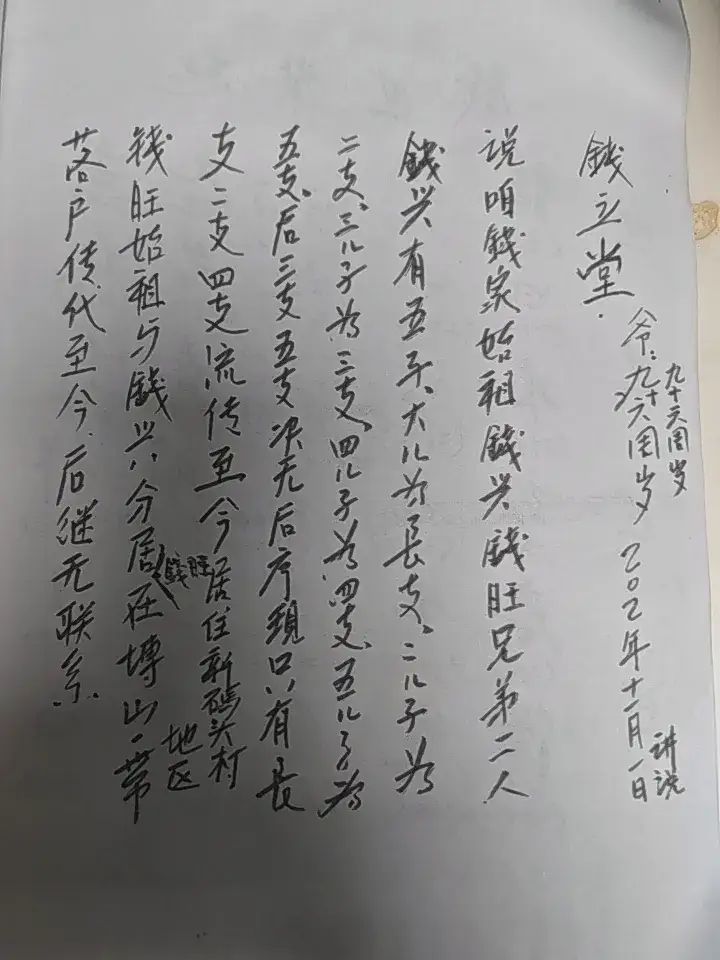 錢立堂.
爷:九十六周岁 2021年十一月一日讲说
九十六周岁
说咱錢家始祖錢兴錢旺兄弟二人
錢兴有五子、大儿为長支、二儿子为
二支、三儿子为三支、四儿子为四支、五儿子为
五支、后三支五支次无后序续只有長
支二支四支流传至今居住新码头村
錢旺始祖与錢兴分居錢旺在博山一带地区
落户传代至今.后继无联系.